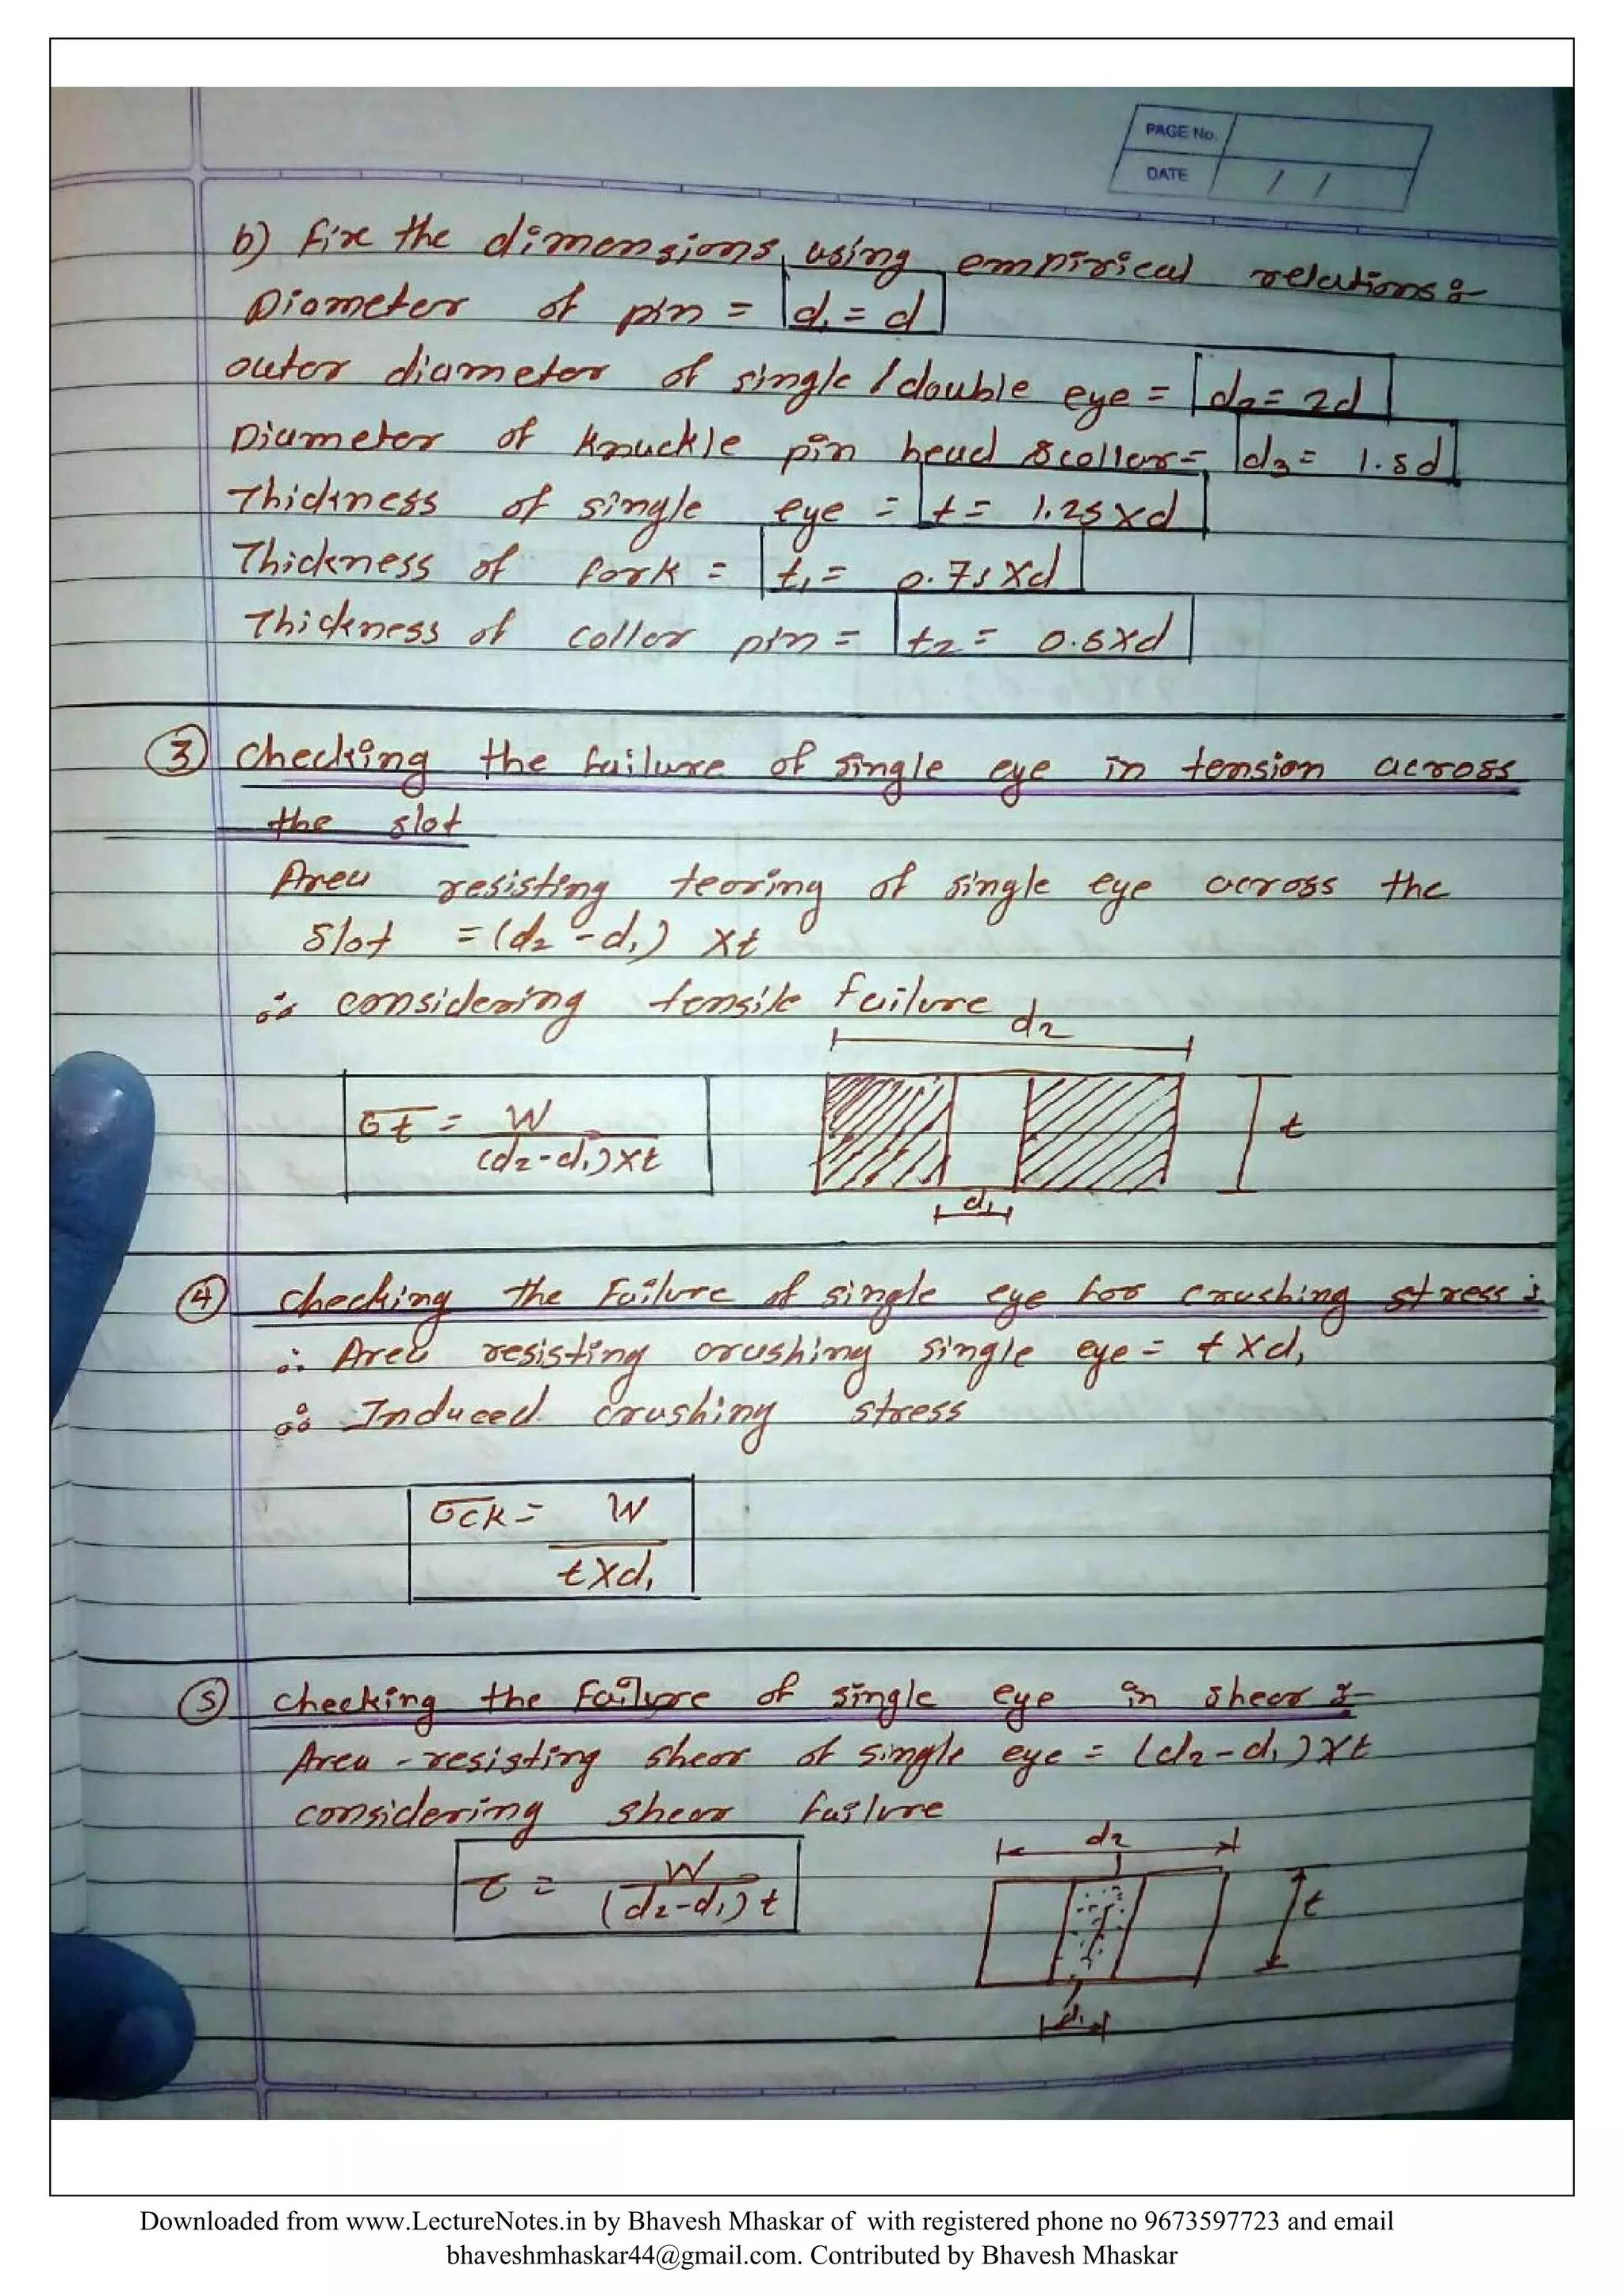 PAGE No.
DATE / /
b) Fix the dimensions using empirical relations :-
Diameter of pin = d₁ = d
outer diameter of single / double eye = d₂ = 2d
Diameter of knuckle pin head & collar = d₃ = 1.5d
Thickness of single eye = t = 1.25 × d
Thickness of fork = t₁ = 0.75 × d
Thickness of collar pin = t₂ = 0.5 × d
③ checking the failure of single eye in tension across
the slot
Area resisting tearing of single eye across the
slot = (d₂ - d₁) × t
∴ considering tensile failure
d₂
σt = W / (d₂ - d₁) × t
t
d₁
④ checking the Failure of single eye for crushing stress :
∴ Area resisting crushing single eye = t × d₁
∴ Induced crushing stress
σck = W / t × d₁
⑤ checking the failure of single eye in shear :-
Area - resisting shear of single eye = (d₂ - d₁) × t
considering shear failure
d₂
τ = W / (d₂ - d₁) t
t
d₁
Downloaded from www.LectureNotes.in by Bhavesh Mhaskar of with registered phone no 9673597723 and email
bhaveshmhaskar44@gmail.com. Contributed by Bhavesh Mhaskar